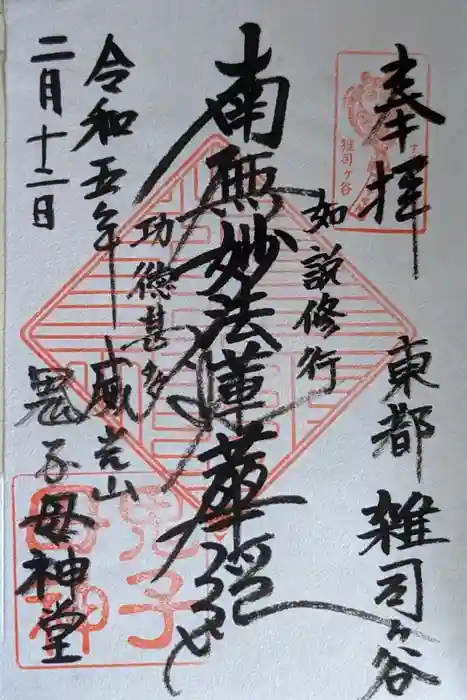 奉拝
雑司ヶ谷
東都 雑司ヶ谷
如説修行
南無妙法蓮華経
功徳甚多
令和五年 威光山
二月十二日
鬼子母神堂
鬼子母神